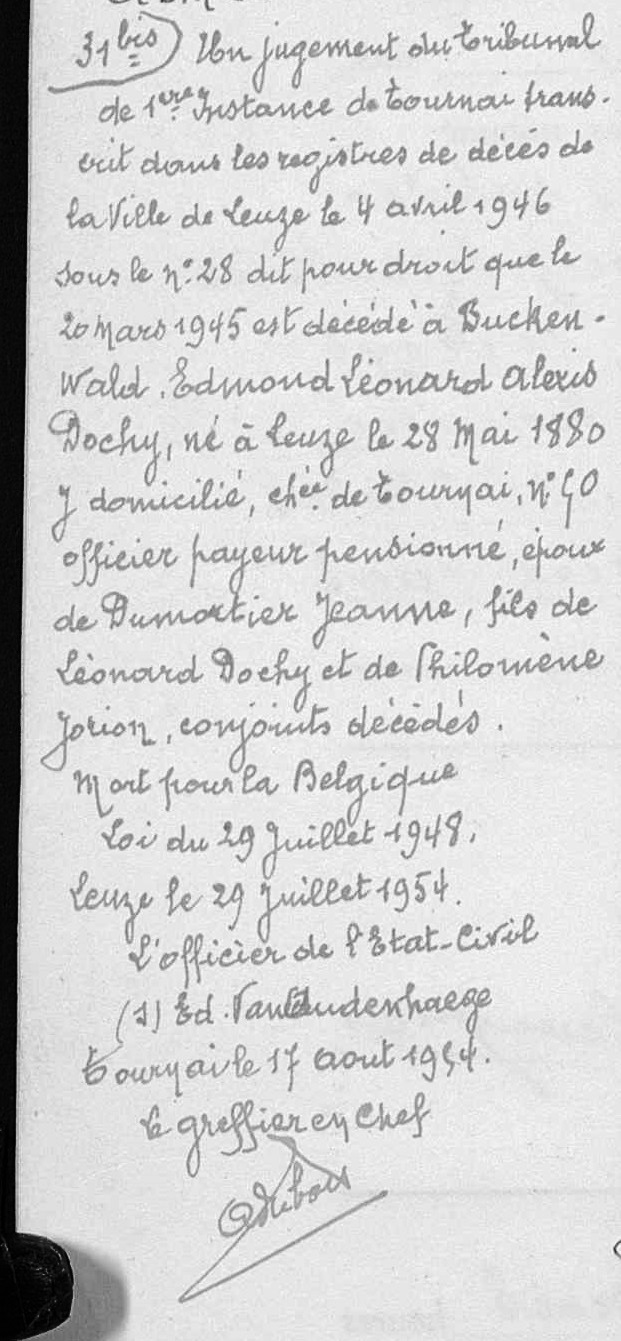 31 bis) Un jugement du tribunal
de 1ère Instance de Tournai trans-
crit dans les registres de décès de
la Ville de Leuze le 4 avril 1946
sous le n° 28 dit pour droit que le
20 Mars 1945 est décédé à Bucken-
Wald, Edmond Léonard Alexis
Dochy, né à Leuze le 28 Mai 1880
y domicilié, chée de Tournai, n° 50
officier payeur pensionné, époux
de Dumortier Jeanne, fils de
Léonard Dochy et de Philomène
Jorion, conjoints décédés.
Mort pour la Belgique
Loi du 29 Juillet 1948.
Leuze le 29 Juillet 1954.
L'officier de l'Etat-Civil
(s) Ed. Vanoudenhaege
Tournai le 17 aout 1954.
Le greffier en chef